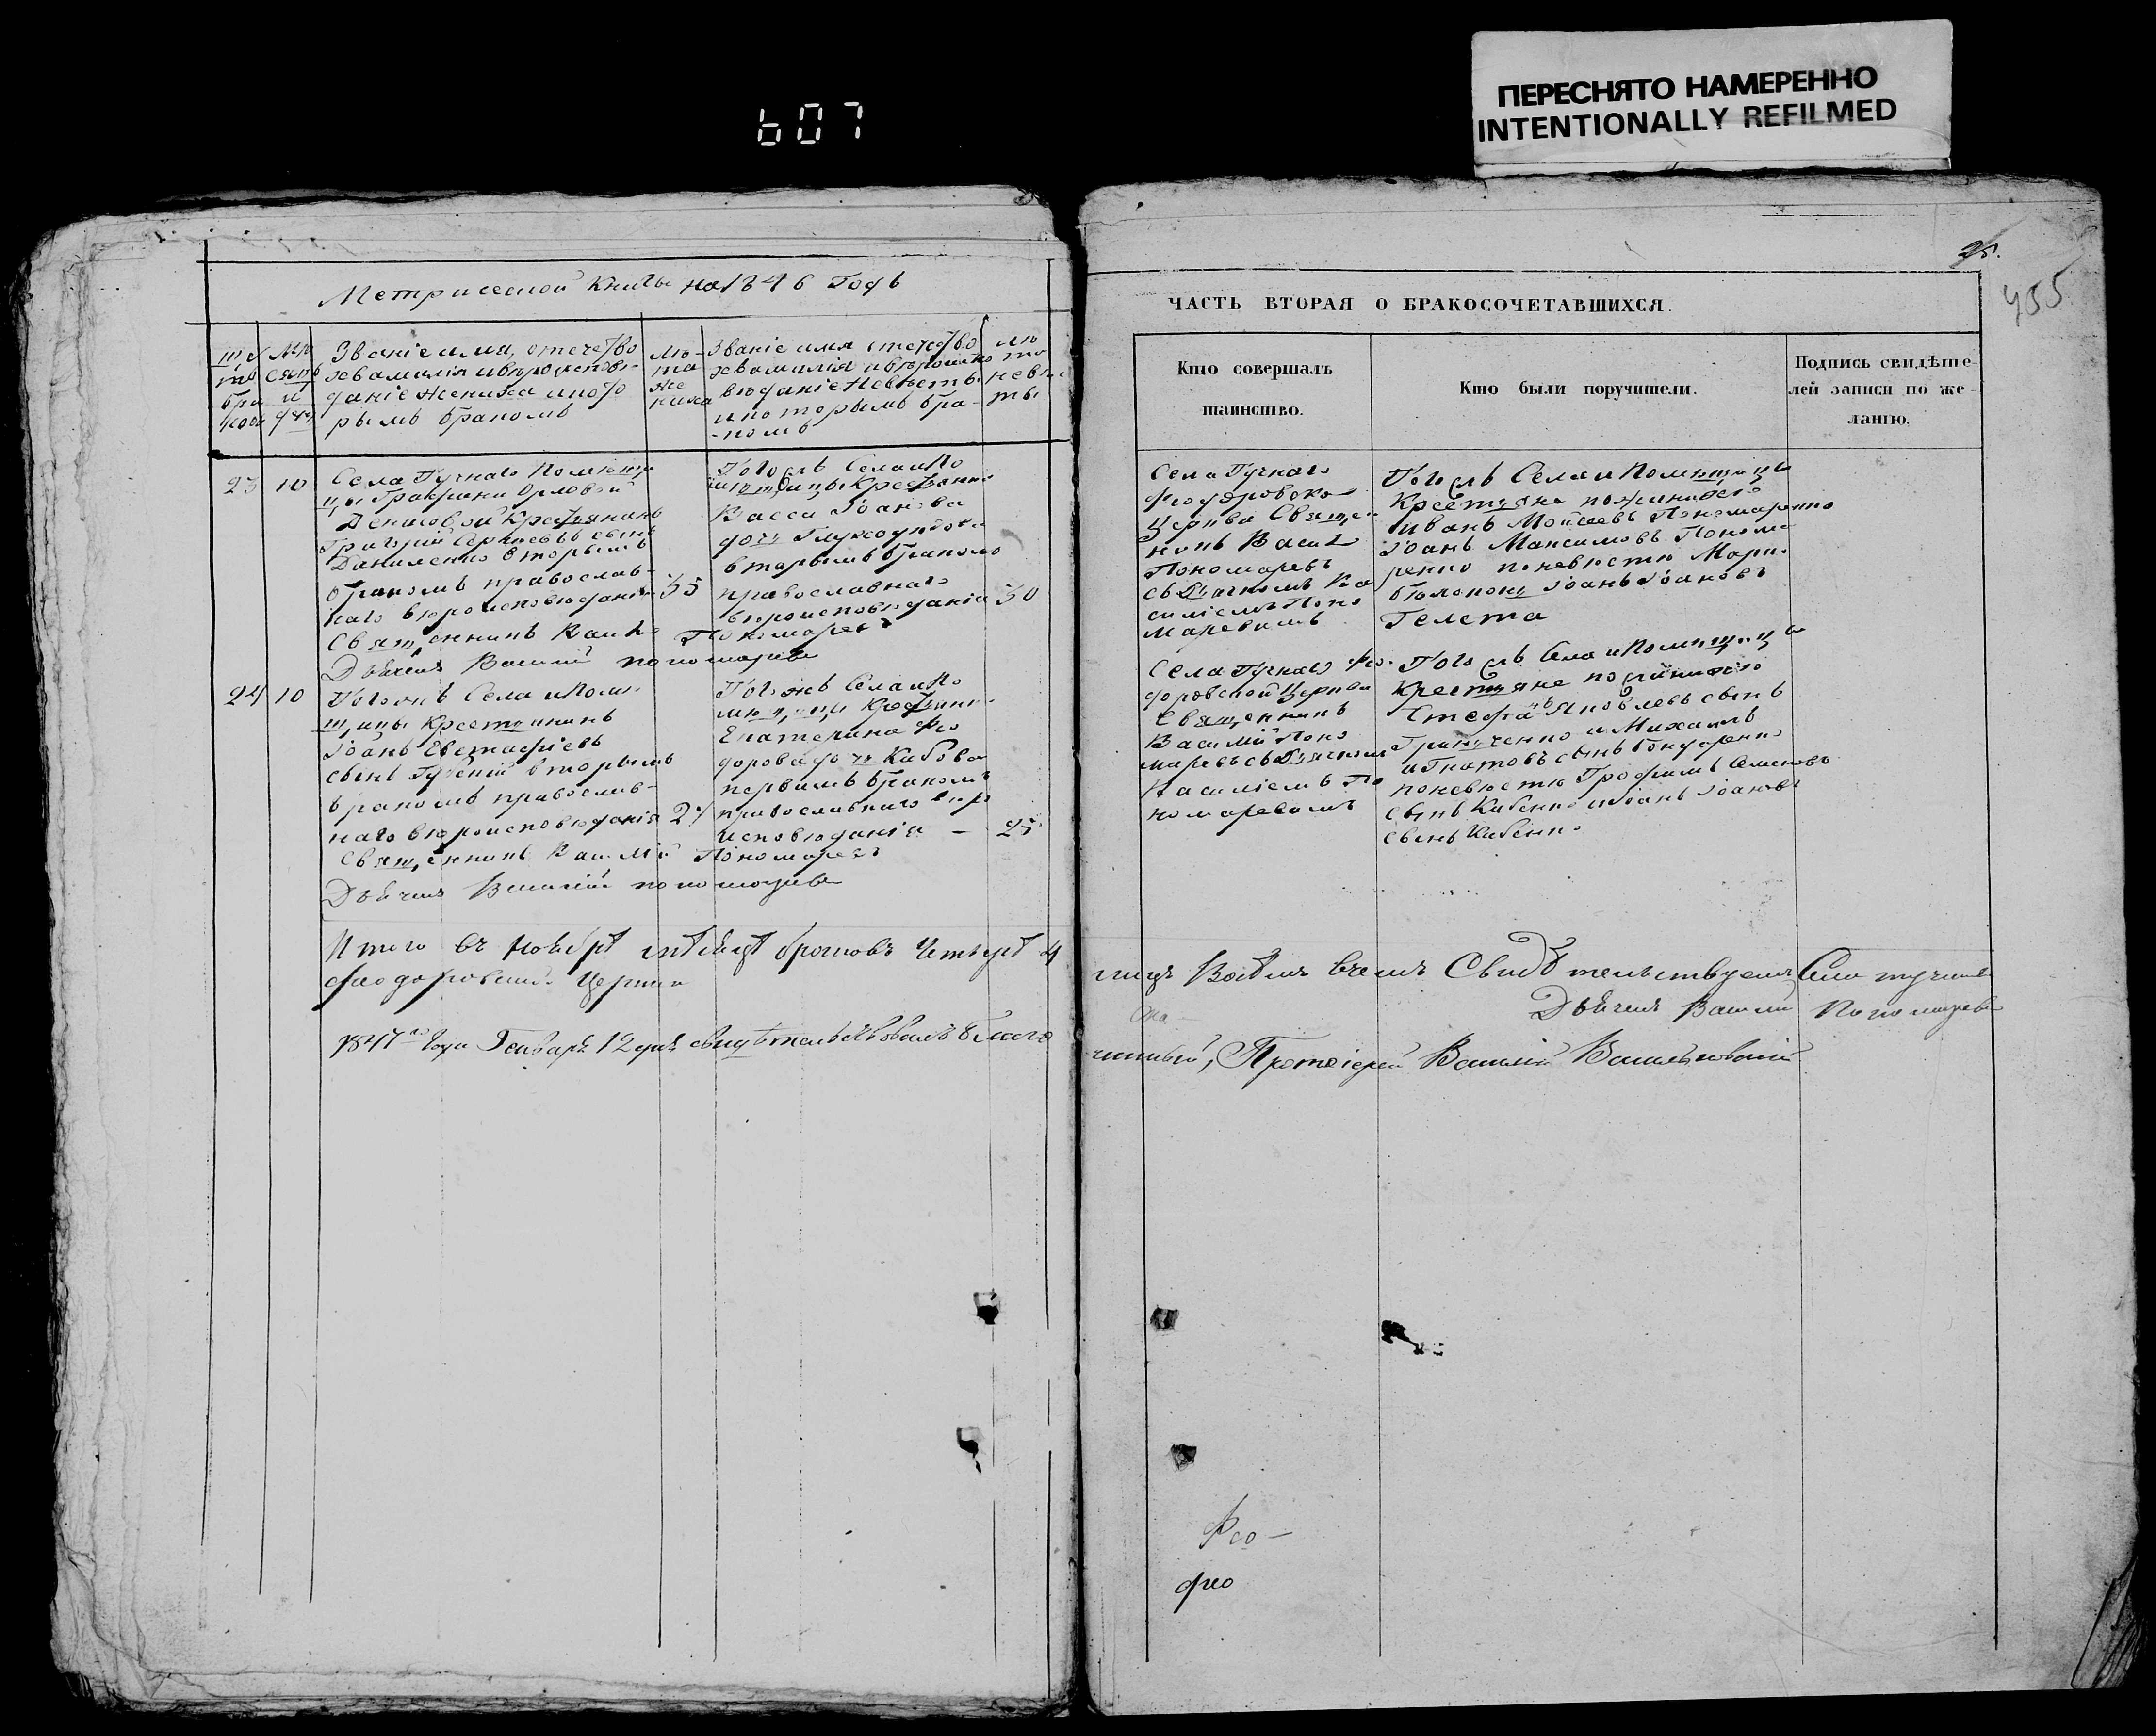 607
ПЕРЕСНЯТО НАМЕРЕННО
INTENTIONALLY REFILMED
25.
455
Метрической Книги на 1846 Годъ
ЧАСТЬ ВТОРАЯ О БРАКОСОЧЕТАВШИХСЯ.
Званіе имя, отечество
жениха и кото
рымъ бракомъ
Лѣ-
та
же
ниха
Званіе имя отечество
невесты
и которымъ бра-
-комъ
Кто совершалъ
таинство.
Кто были поручители.
Подпись свидѣте-
лей записи по же-
ланію.
23 10
Села Гучнаго Помѣщи
цы Графини Орловой
Денисовой Крестьянинъ
Григорій Сергіевъ сынъ
Даниленко вторымъ
бракомъ православ-
наго вѣроисповѣданія 35
Священникъ Василій Пономаревъ
Дьячекъ Василій Пономаревъ
Тогожъ Села и По
мѣщицы Крестьянка
Васса Іоанова
дочь
вторымъ бракомъ
православнаго
вѣроисповѣданія 30
Села Гучнаго
Феодоровской
Церкви Священ
никъ Васил
Пономаревъ
съ Дьячкомъ Ва
силіемъ Поно
маревымъ
Тогожъ Села и Помѣщицы
Крестьяне по женихѣ
Иванъ Мойсеевъ Пономаренко
Іоанъ Максимовъ Понома
ренко по невѣстѣ Марк
Іоанъ Іоановъ
Гелета
24 10
Тогожъ Села и Помѣ
щицы Крестьянинъ
Іоанъ Евстафіевъ
сынъ вторымъ
бракомъ православ-
наго вѣроисповѣданія 27
Священникъ Василій Пономаревъ
Дьячекъ Василій Пономаревъ
Тогожъ Села и По
мѣщицы Крестьянка
Екатерина Фео
дорова дочь
первымъ бракомъ
православнаго вѣро
исповѣданія - 25
Села Гучнаго Фео-
доровской Церкви
Священникъ
Василій Поно
маревъ съ Дьячкомъ
Василіемъ По
номаревымъ
Тогожъ Села и Помѣщицы
Крестьяне по женихѣ
Стефанъ Яковлевъ сынъ
и Михаилъ
Игнатовъ сынъ Бондаренко
по невѣстѣ Трофимъ Семеновъ
сынъ Кабенко и Іоанъ Іоановъ
сынъ Кабенко
Итого въ Ноябрѣ мѣсяцѣ браковъ Четыре 4
Феодоровской Церкви
Въ чемъ Свидѣтельствуемъ Села
Дьячекъ Василій Пономаревъ
1847го Года Генваря 12 дня свидѣтельствовалъ Благо
чинный, Протоіерей Василій Васильковскій
Фео-
фео